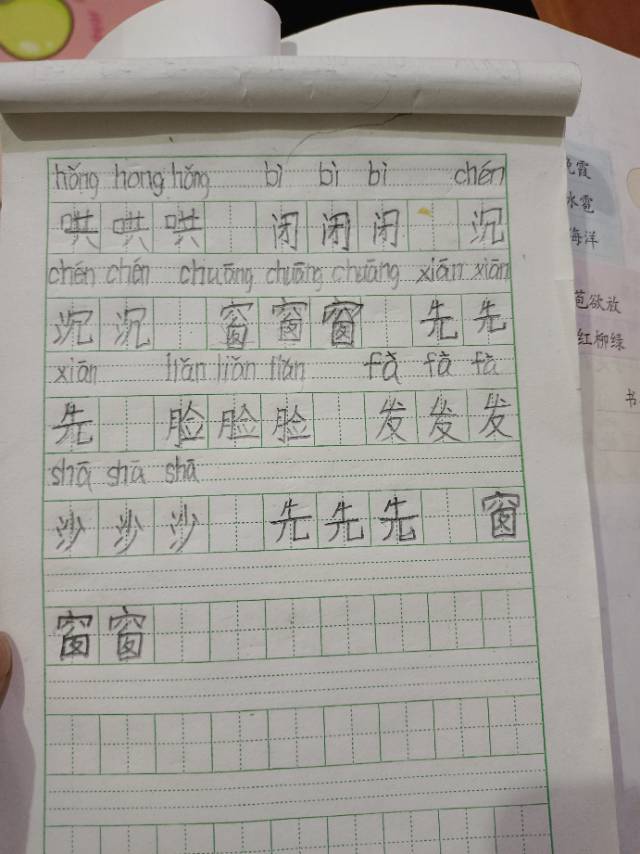 hǒng hong hǒng bì bì bì chén
哄 哄 哄 闭 闭 闭 沉
chén chén chuāng chuāng chuāng xiān xiān
沉 沉 窗 窗 窗 先 先
xiān liǎn liǎn liǎn fà fà fà
先 脸 脸 脸 发 发 发
shā shā shā
沙 沙 沙 先 先 先 窗
窗 窗
霞
冰雹
海洋
苞欲放
红柳绿
书